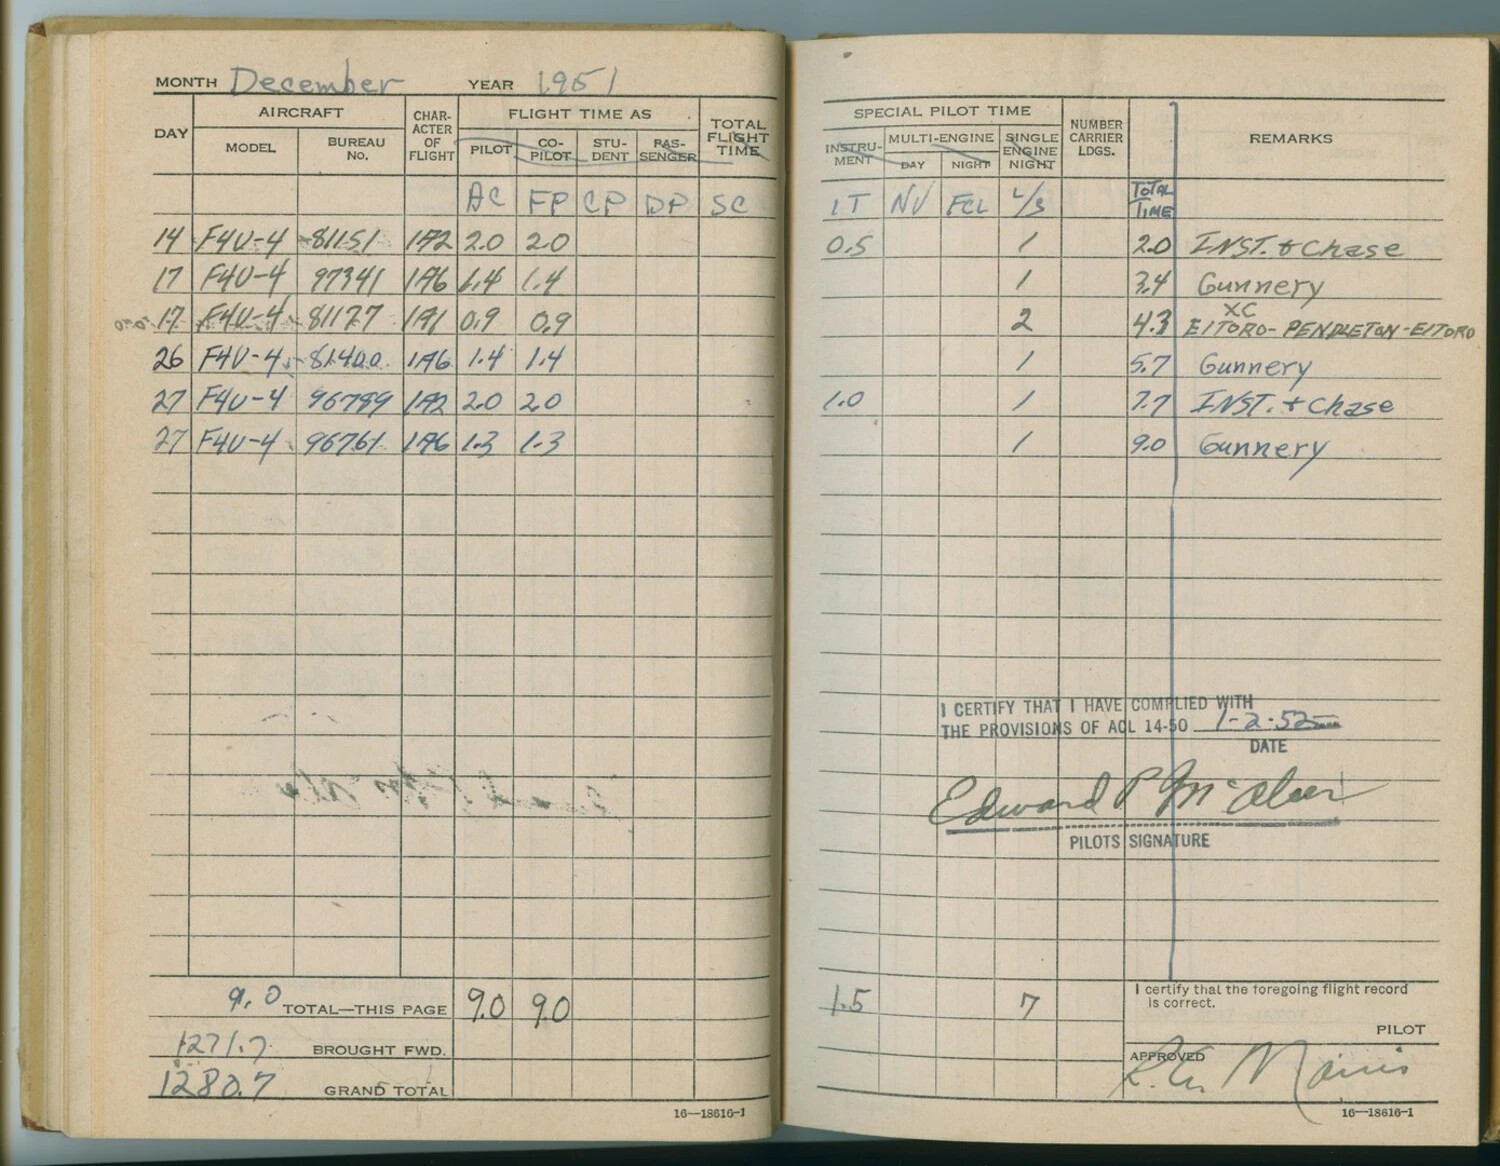 MONTH December YEAR 1951
DAY AIRCRAFT CHARACTER OF FLIGHT FLIGHT TIME AS TOTAL FLIGHT TIME
MODEL BUREAU No. PILOT CO-PILOT STU-DENT PAS-SENGER
AC FP CP DP SC
14 F4U-4 81151 1A2 2.0 2.0
17 F4U-4 97341 1A6 1.4 1.4
17 F4U-4 81177 1A1 0.9 0.9
26 F4U-4 81400 1A6 1.4 1.4
27 F4U-4 96789 1A2 2.0 2.0
27 F4U-4 96761 1A6 1.3 1.3
9.0 TOTAL—THIS PAGE 9.0 9.0
1271.7 BROUGHT FWD.
1280.7 GRAND TOTAL
16—18616-1
SPECIAL PILOT TIME NUMBER CARRIER LDGS. REMARKS
INSTRU-MENT MULTI-ENGINE SINGLE ENGINE NIGHT
DAY NIGHT
IT NV FCL L/S TOTAL TIME
0.5 1 2.0 INST. + Chase
1 3.4 Gunnery
XC
2 4.3 ElTORO-PENDLETON-ElTORO
1 5.7 Gunnery
1.0 1 7.7 INST. + Chase
1 9.0 Gunnery
I CERTIFY THAT I HAVE COMPLIED WITH
THE PROVISIONS OF ACL 14-50 1-2-52
DATE
Edward P McAleer
PILOTS SIGNATURE
1.5 7 I certify that the foregoing flight record
is correct.
PILOT
APPROVED
16—18616-1